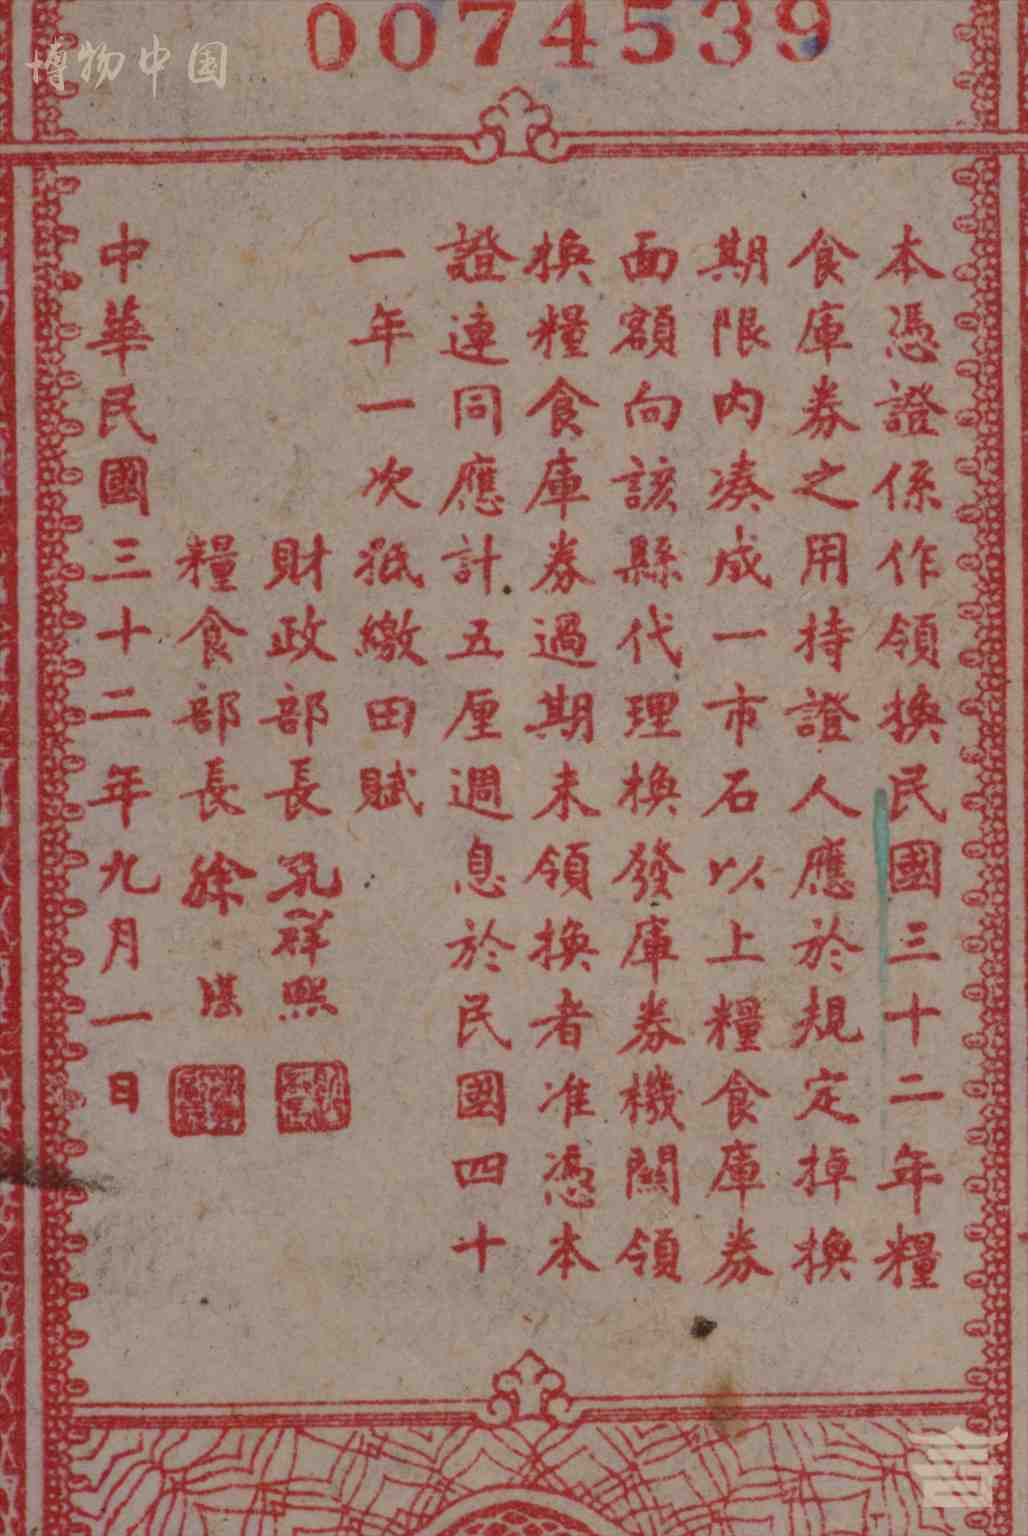 0074539
博物中国
本憑證係作領換民國三十二年糧
食庫券之用持證人應於規定掉換
期限内湊成一市石以上糧食庫券
面額向該縣代理換發庫券機關領
換糧食庫券過期未領換者准憑本
證連同應計五厘週息於民國四十
一年一次抵繳田賦
財政部長 孔祥熙
糧食部長 徐堪
中華民國三十二年九月一日